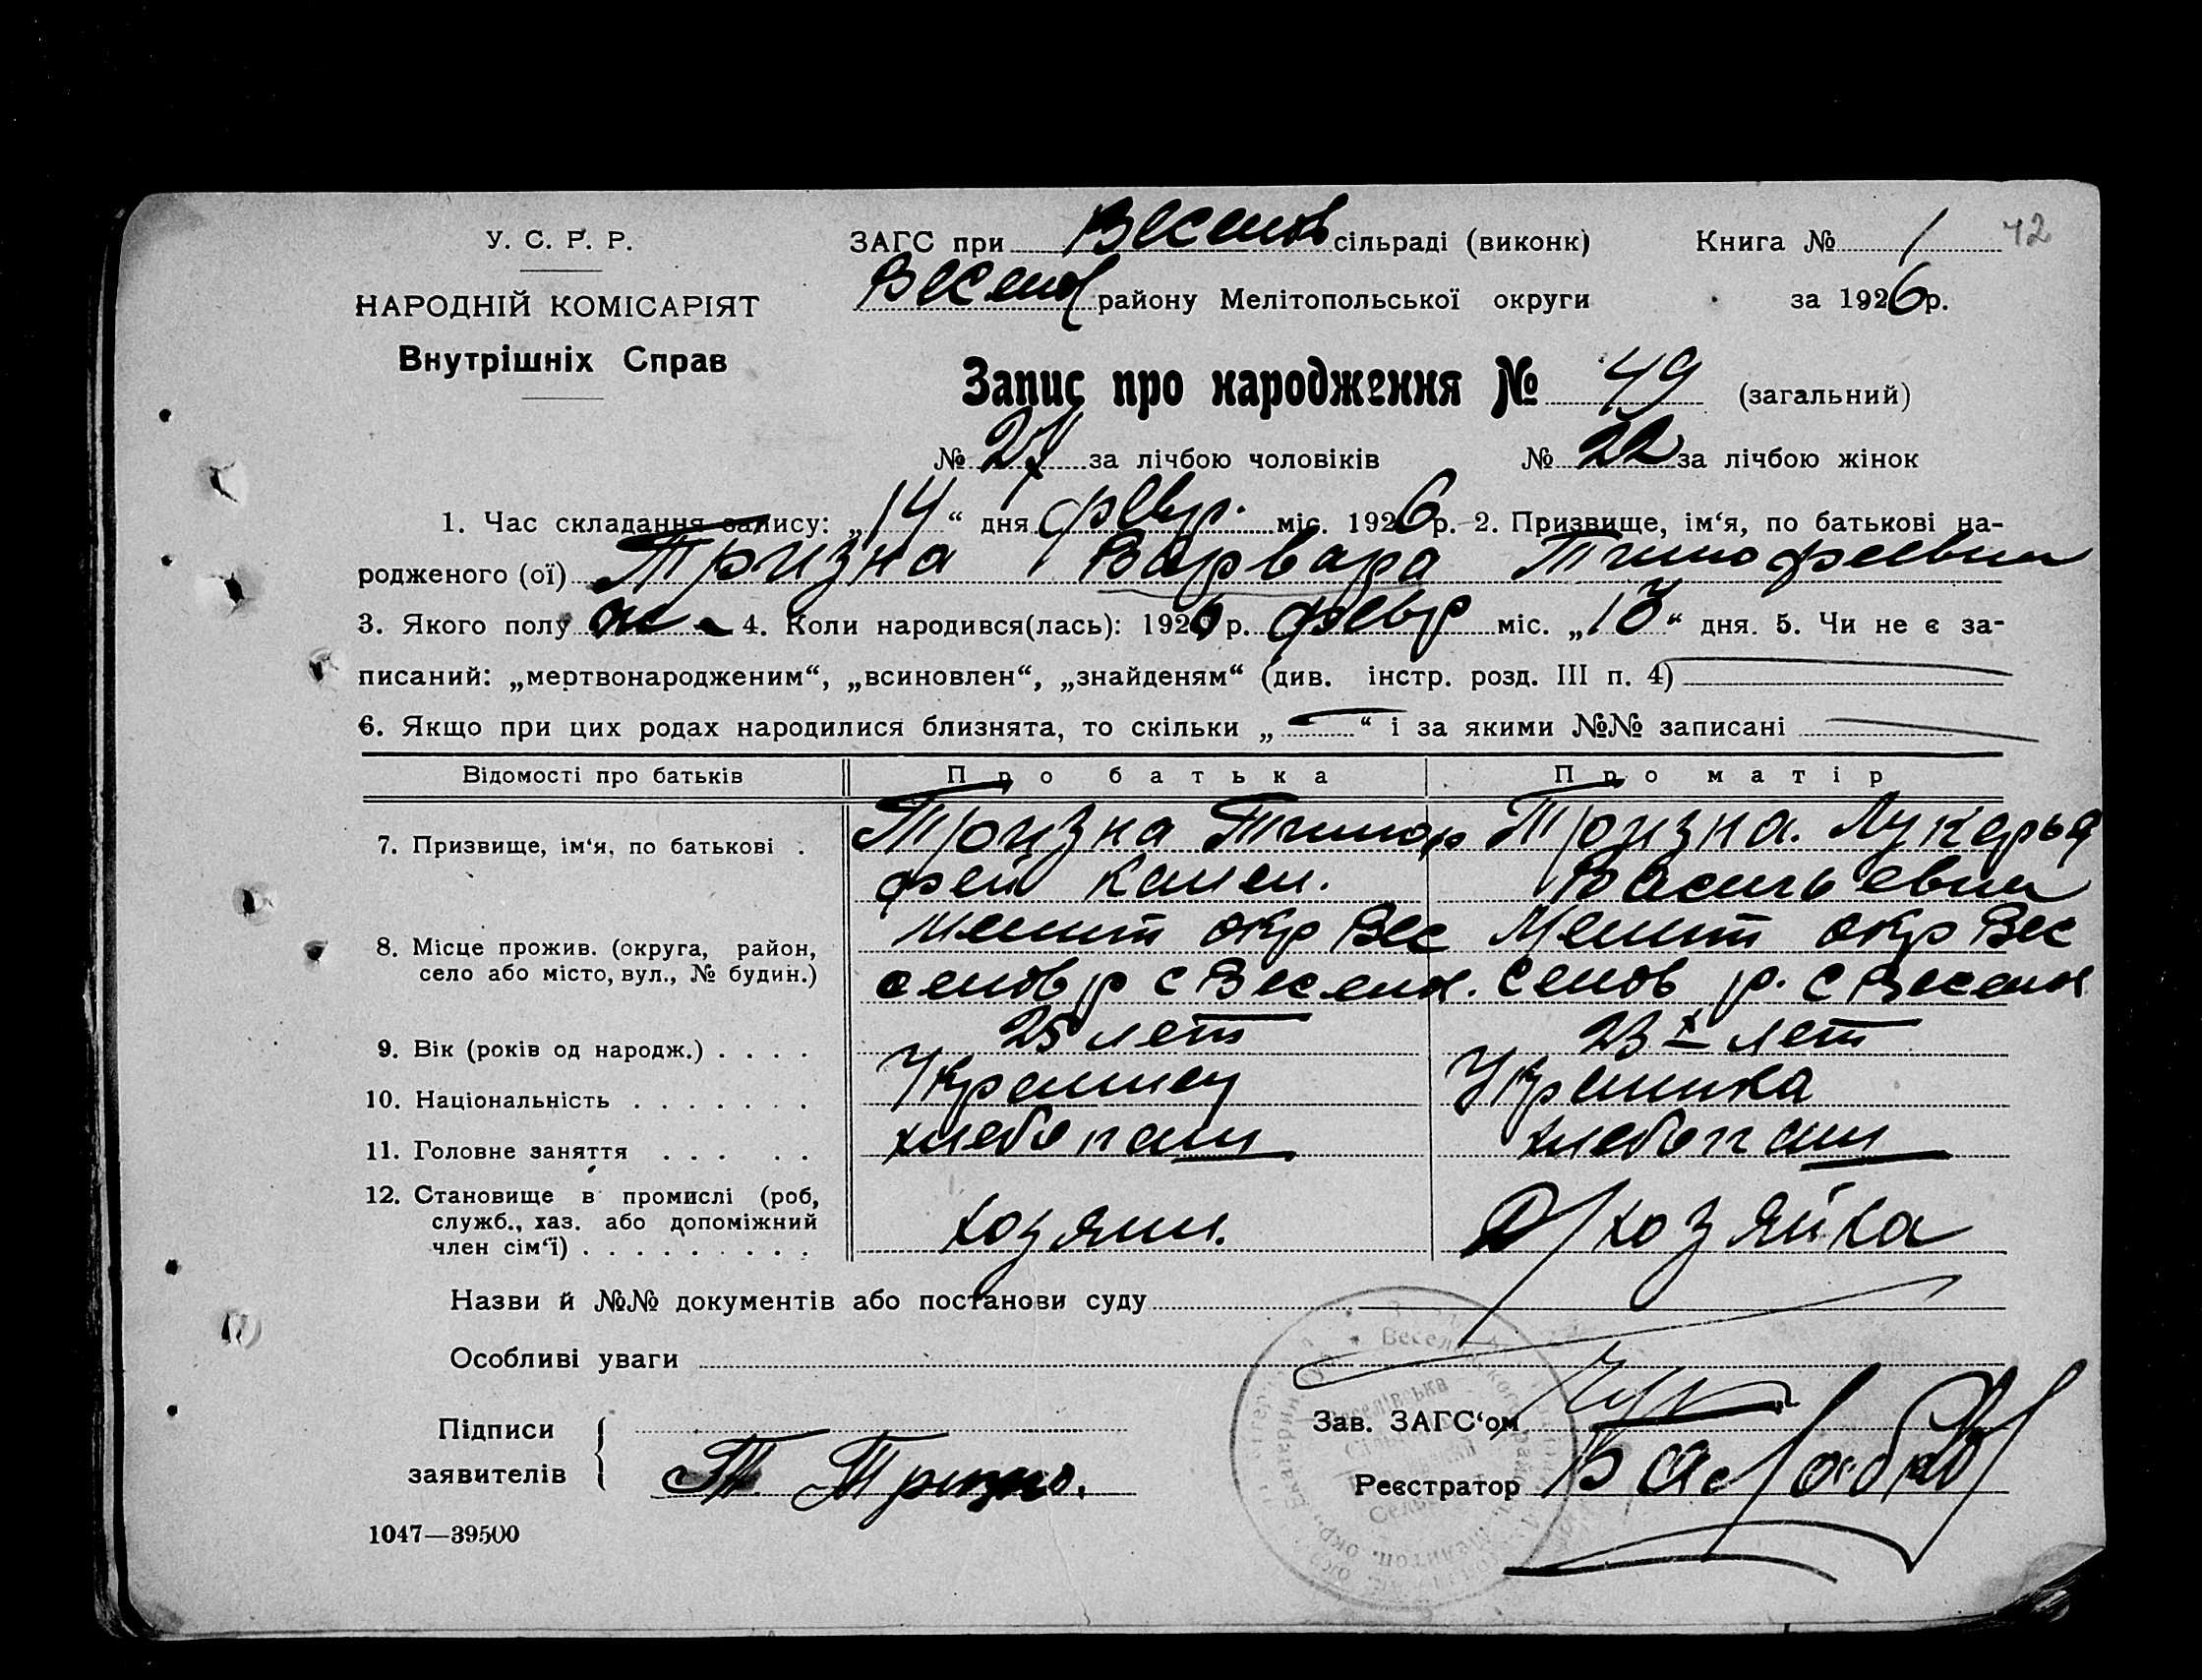 У. С. Р. Р.
НАРОДНІЙ КОМІСАРІЯТ
Внутрішніх Справ
ЗАГС при Веселов сільраді (виконк) Книга № 1 42
Веселов району Мелітопольської округи за 1926 р.
Запис про народження № 49 (загальний)
№ 27 за лічбою чоловіків № 22 за лічбою жінок
1. Час складання запису: „14“ дня февр. міс. 1926 р. 2. Призвище, ім‘я, по батькові на-
родженого (ої) Тризна Варвара Тимофеевна
3. Якого полу ж 4. Коли народився(лась): 1926 р. февр міс. „13“ дня. 5. Чи не є за-
писаний: „мертвонародженим“, „всиновлен“, „знайденям“ (див. інстр. розд. III п. 4)
6. Якщо при цих родах народилися близнята, то скільки „ “ і за якими №№ записані
Відомості про батьків Про батька Про матір
7. Призвище, ім‘я, по батькові . Тризна Тимо Тризна. Лукерья
фей Васильевна
Мелит окр Вес Мелит окр Вес
8. Місце прожив. (округа, район,
село або місто, вул., № будин.)
елов р с Веселов. елов р. с Веселов
9. Вік (років од народж.) . . . . 25 лет 23 х лет
10. Національність . . . . . . . Украинец Украинка
11. Головне заняття . . . . . хлебопаш хлебопаш
12. Становище в промислі (роб,
служб., хаз. або допоміжний
член сім‘ї) . . . . . . . . . хозяин. Д/хозяйка
Назви й №№ документів або постанови суду
Особливі уваги
Підписи
заявителів
Т. Тризна.
Зав. ЗАГС‘ом
Реєстратор
1047—39500